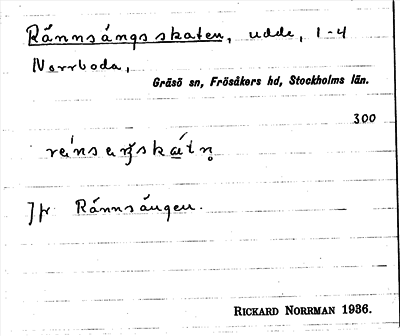 Rännsängsskaten, udde, 1-4
Norrboda,
Gräsö sn, Frösåkers hd, Stockholms län.
300
Jfr Rännsängen.
RICKARD NORRMAN 1936.